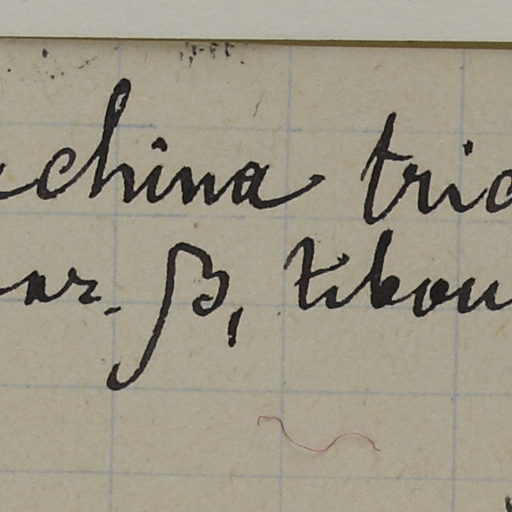 china tric
ar. β, tibou